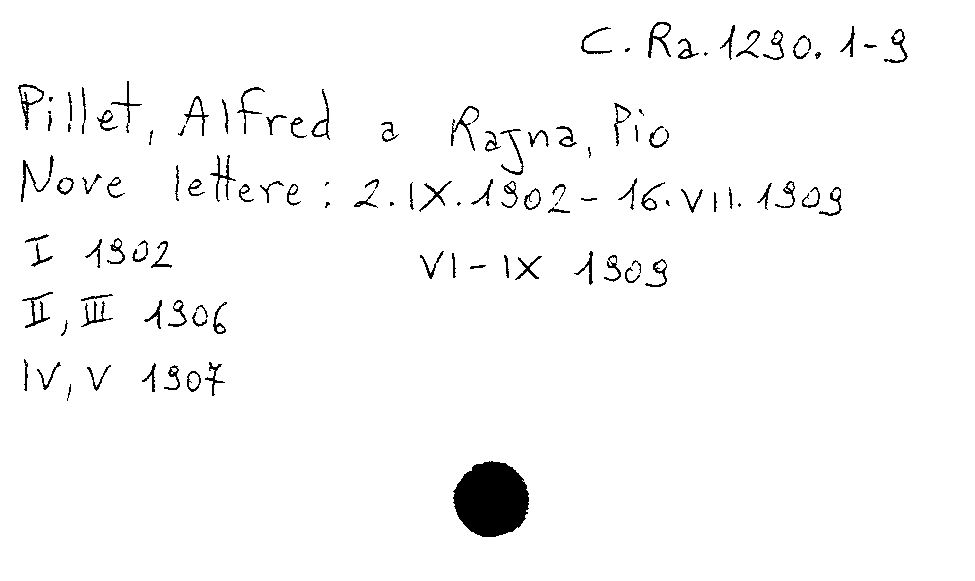 C. Ra. 1290. 1-9
Pillet, Alfred a Rajna, Pio
Nove lettere: 2.IX.1902 - 16.VII.1909
I 1902
II, III 1906
IV, V 1907
VI-IX 1909